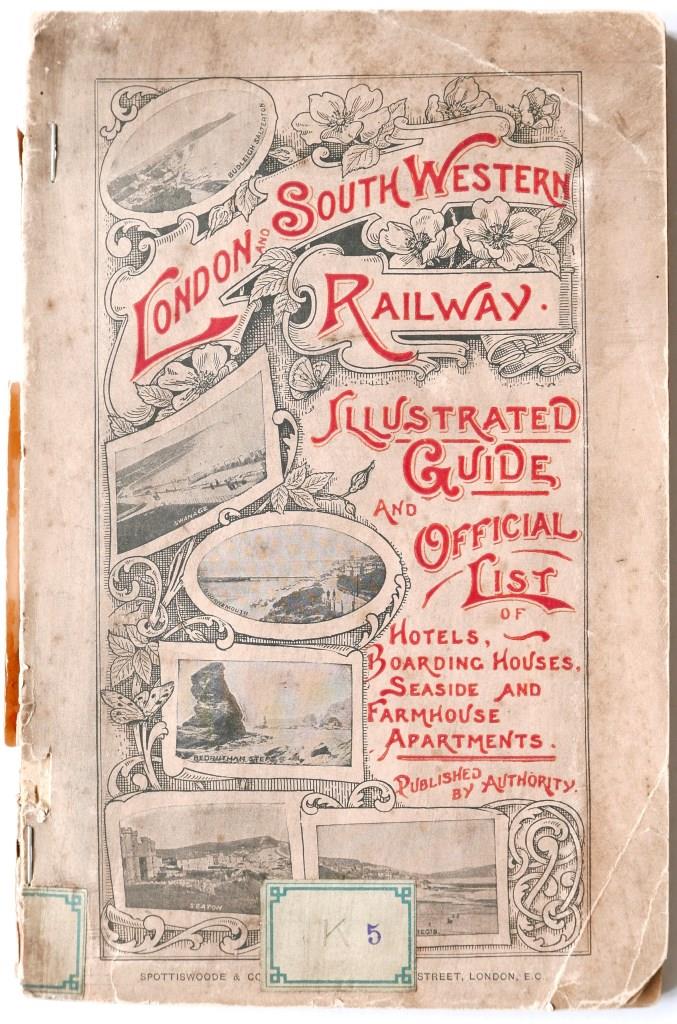 BUDLEIGH SALTERTON
LONDON AND SOUTH WESTERN
RAILWAY.
ILLUSTRATED
GUIDE
AND
OFFICIAL
LIST
OF
HOTELS,
BOARDING HOUSES,
SEASIDE AND
FARMHOUSE
APARTMENTS.
PUBLISHED
BY AUTHORITY.
SWANAGE
BEDRUTHAN STEPS
SEATON
REGIS
K 5
SPOTTISWOODE & CO STREET, LONDON, E.C.